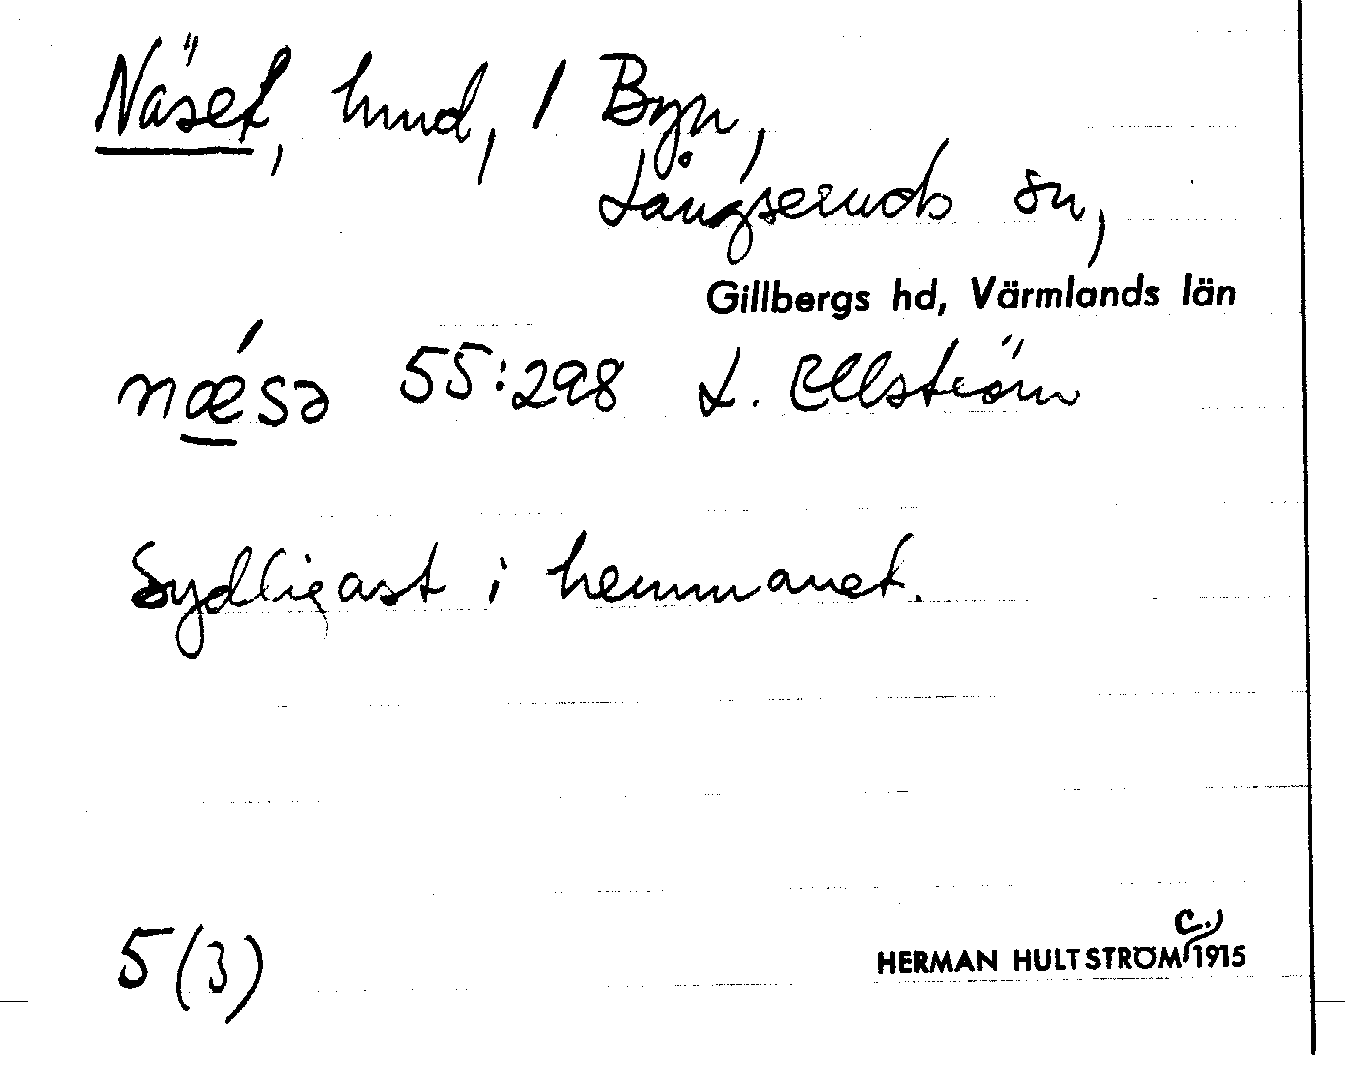 Näset, hmd, i Byn,
Långseruds sn,
Gillbergs hd, Värmlands län
nǽ̲sə 55:298 L. Ellström
Sydligast i hemmanet.
5(3)
c.)
HERMAN HULTSTRÖM 1915